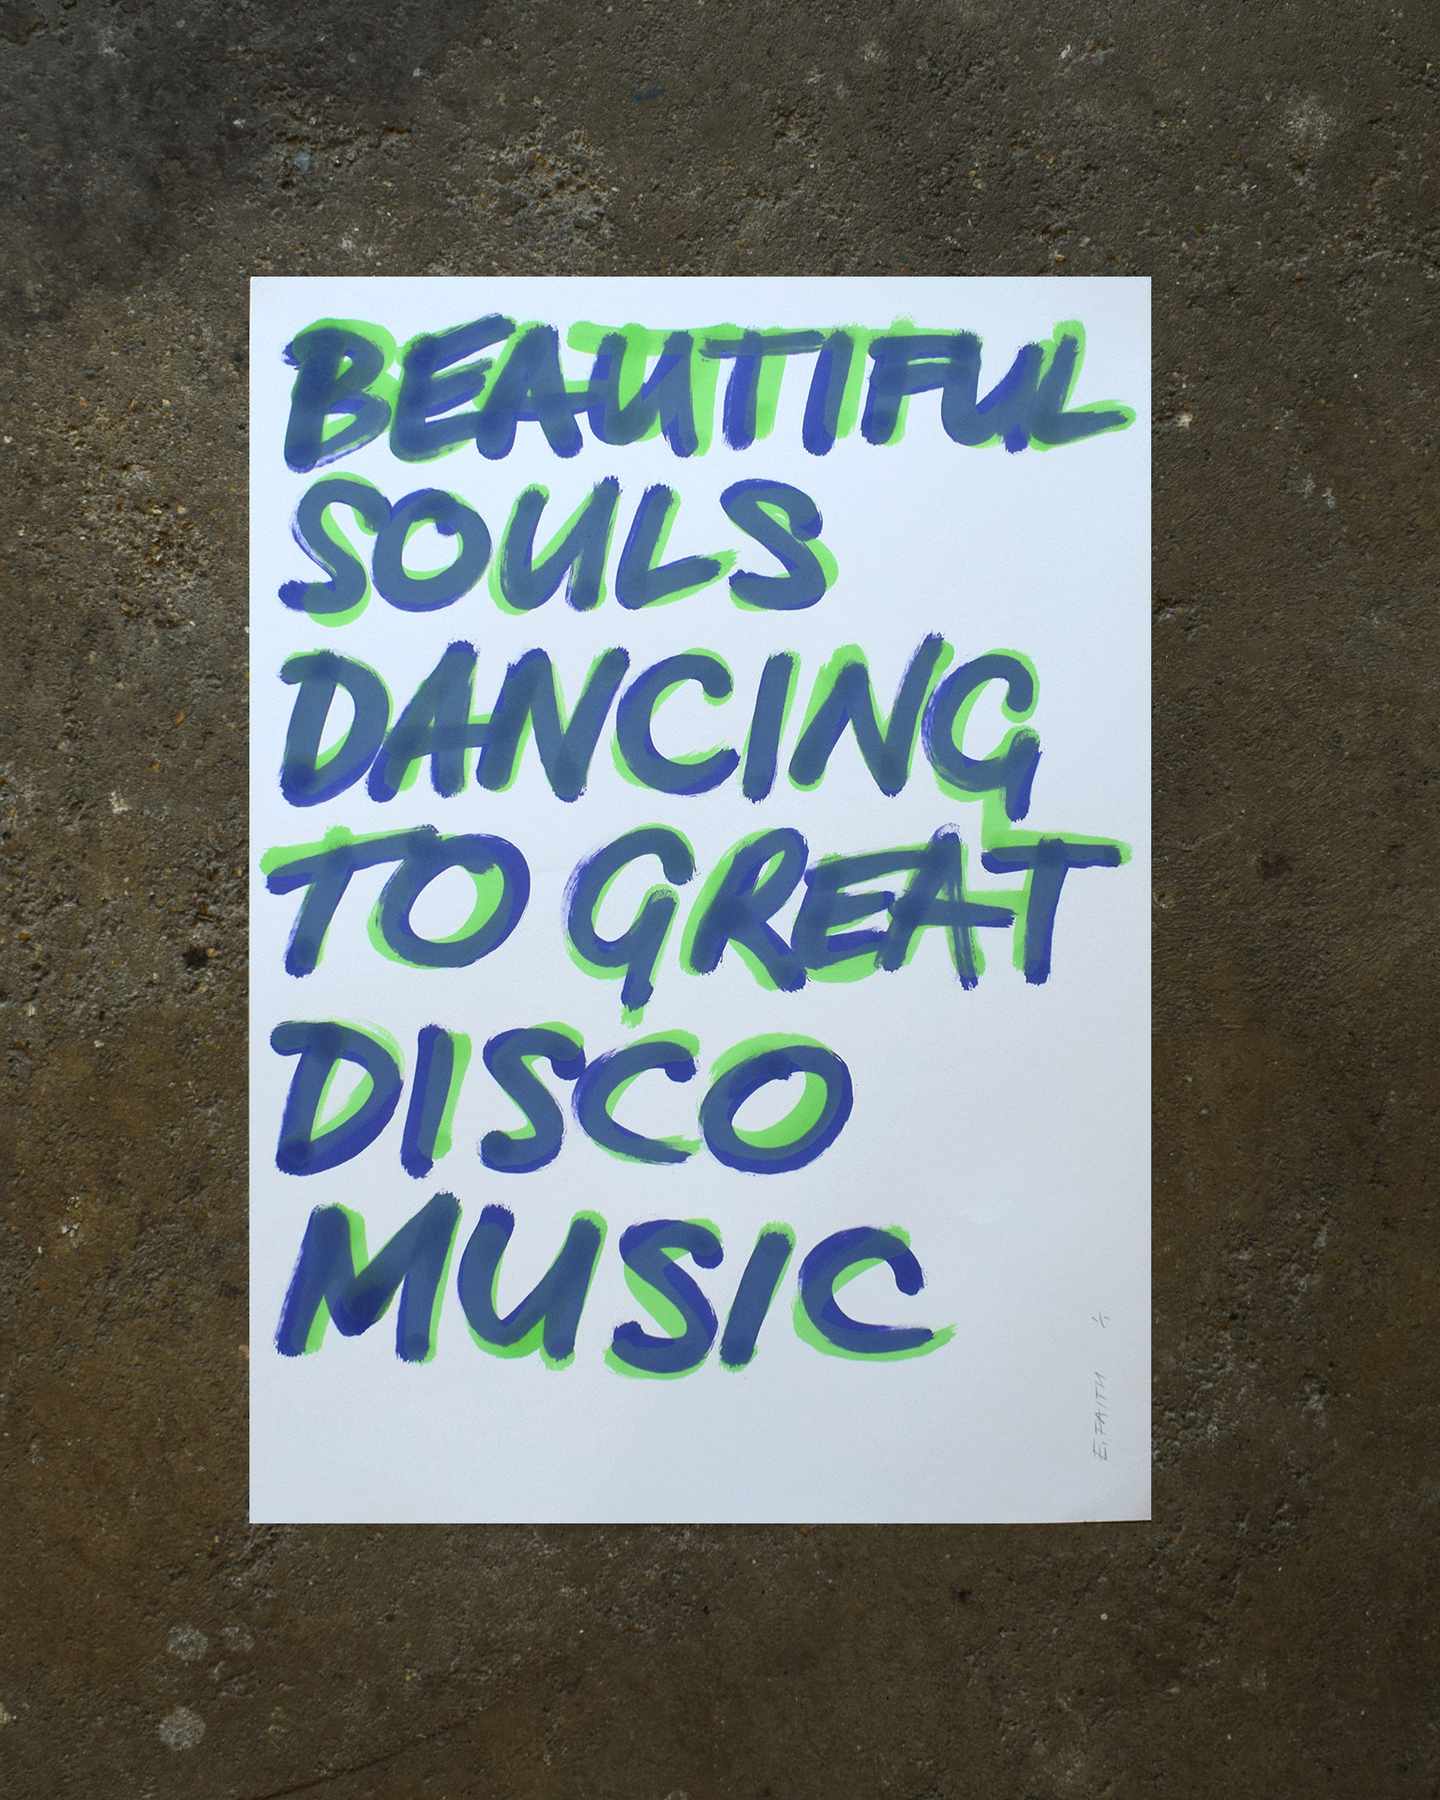 BEAUTIFUL
SOULS
DANCING
TO GREAT
DISCO
MUSIC
E. FAITH 1/1